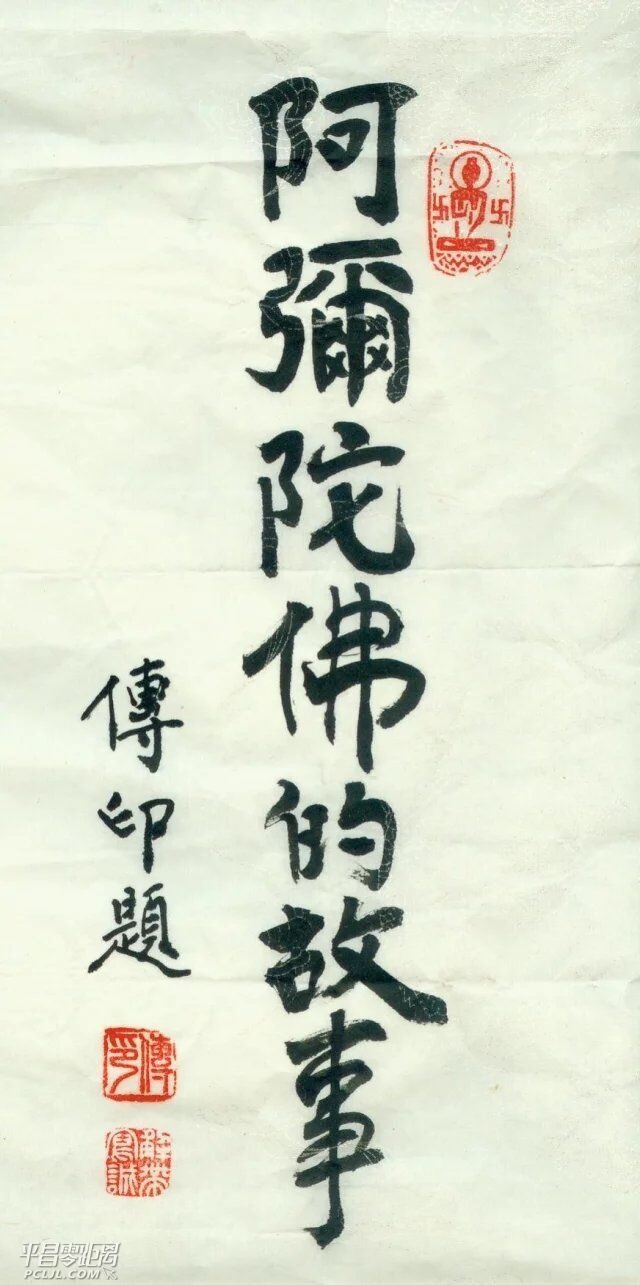 阿彌陀佛的故事
傳印題
傳印
平昌零距离
PCLJL.COM